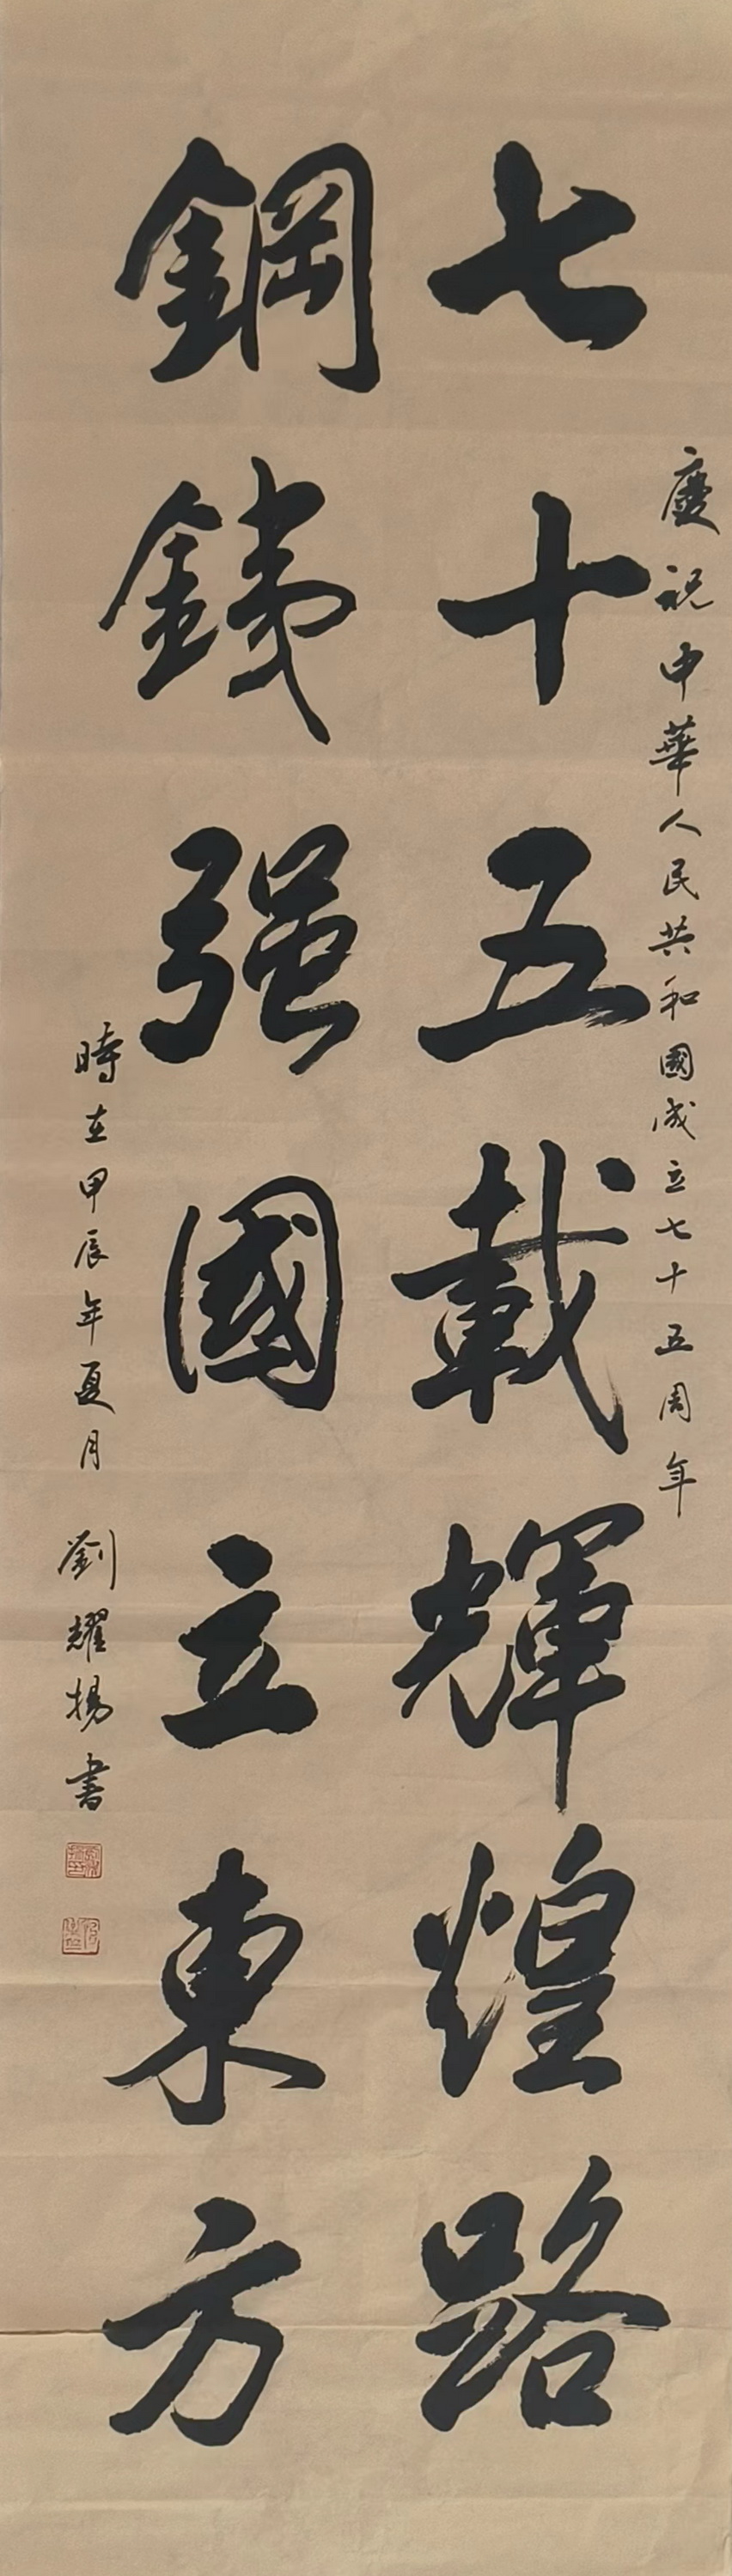 慶祝中華人民共和國成立七十五周年
七十五載輝煌路
鋼鐵强國立東方
時在甲辰年夏月 劉耀揚書